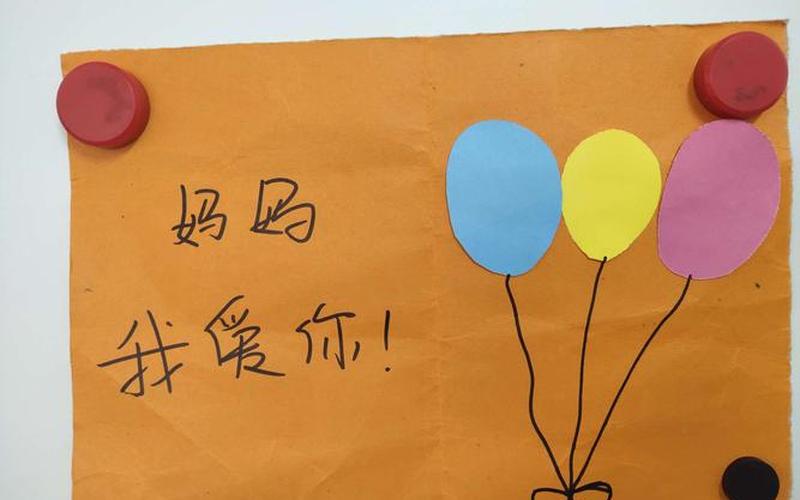 妈妈
我爱你!